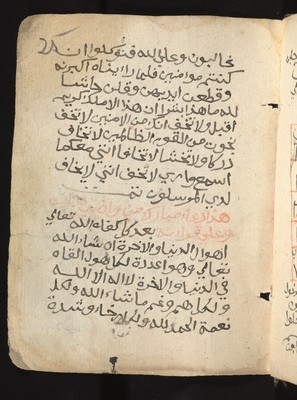 غالبون وعلى الله فتوكلوا ان
كنتم مومنين فلما راينه اكبرنه
وقطعن ايديهن وقلن حاشا
لله ما هذا بشرا ان هذا الا ملك كريم
اقبل ولا تخف انك من الامنين لا تخف
نجوت من القوم الظالمين لا تخاف
دركا ولا تخشا لا تخافا انني معكما
اسمع واري لا تخف انني لا يخاف
لدي المرسلون تمت
هذا دعاء مبارك
كفاه الله تعالي
اهوال الدنيا والاخرة ان شاء الله
تعالي وهو اعددت لكل هول القاه
في الدنيا والاخرة لا اله الا الله
ولكل هم وغم ما شاء الله ولكل
نعمة الحمد لله ولكل رخاء وشدة